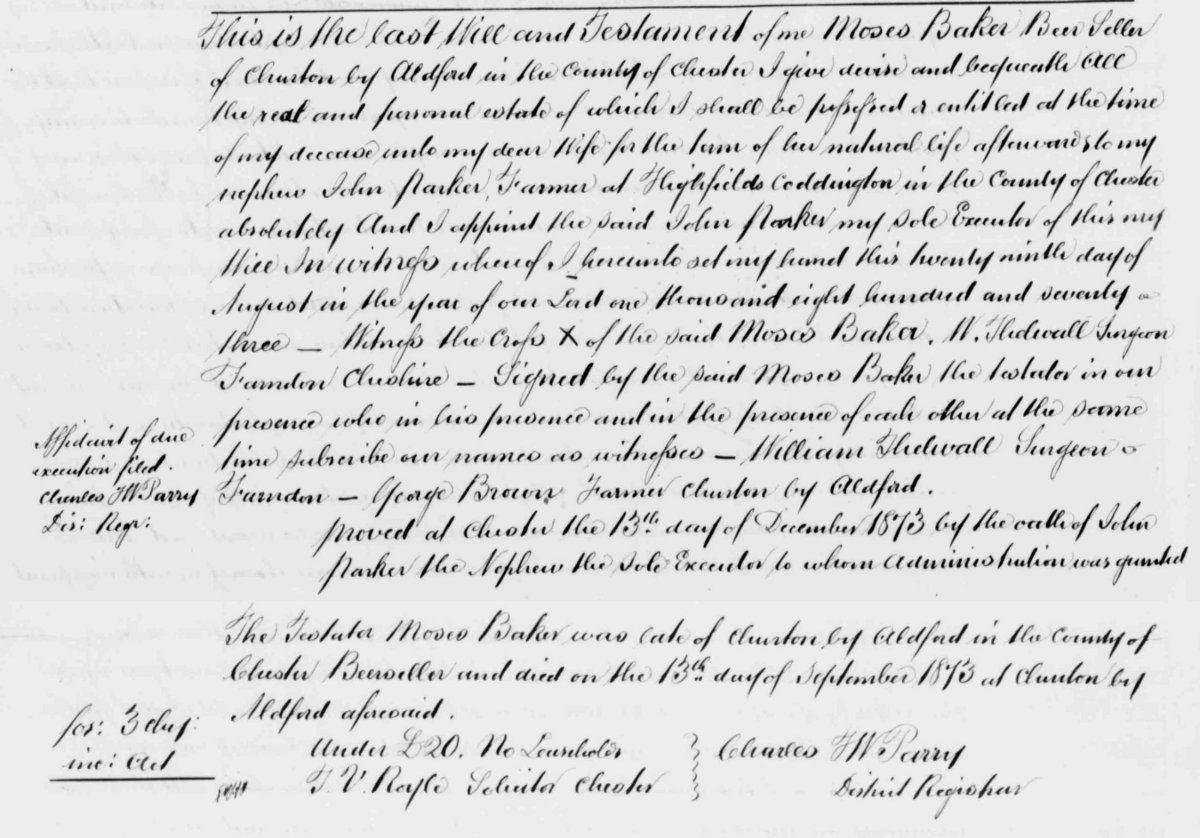 This is the last Will and Testament of me Moses Baker Beer Seller
of Churton by Aldford in the County of Chester I give devise and bequeath All
the real and personal estate of which I shall be possessed or entitled at the time
of my decease unto my dear Wife for the term of her natural life afterwards to my
nephew John Parker, Farmer at Highfields Coddington in the County of Chester
absolutely And I appoint the said John Parker my sole Executor of this my
Will In witness whereof I hereunto set my hand this twenty ninth day of
August in the year of our Lord one thousand eight hundred and seventy
three — Witness the Cross X of the said Moses Baker. W. Thelwall Surgeon
Farndon Cheshire — Signed by the said Moses Baker the testator in our
presence who in his presence and in the presence of each other at the same
time subscribe our names as witnesses — William Thelwall Surgeon
Farndon — George Brown Farmer Churton by Aldford.
Affidavit of due
execution filed.
Charles FW Parry
Dis: Regr:
Proved at Chester the 13th day of December 1873 by the oath of John
Parker the Nephew the sole Executor to whom Administration was granted
The Testator Moses Baker was late of Churton by Aldford in the County of
Chester Beerseller and died on the 13th day of September 1873 at Churton by
Aldford aforesaid.
fos: 3
inc: Act
Under £20. No Leaseholds
T V Royle Solicitor Chester
Charles FW Parry
District Registrar